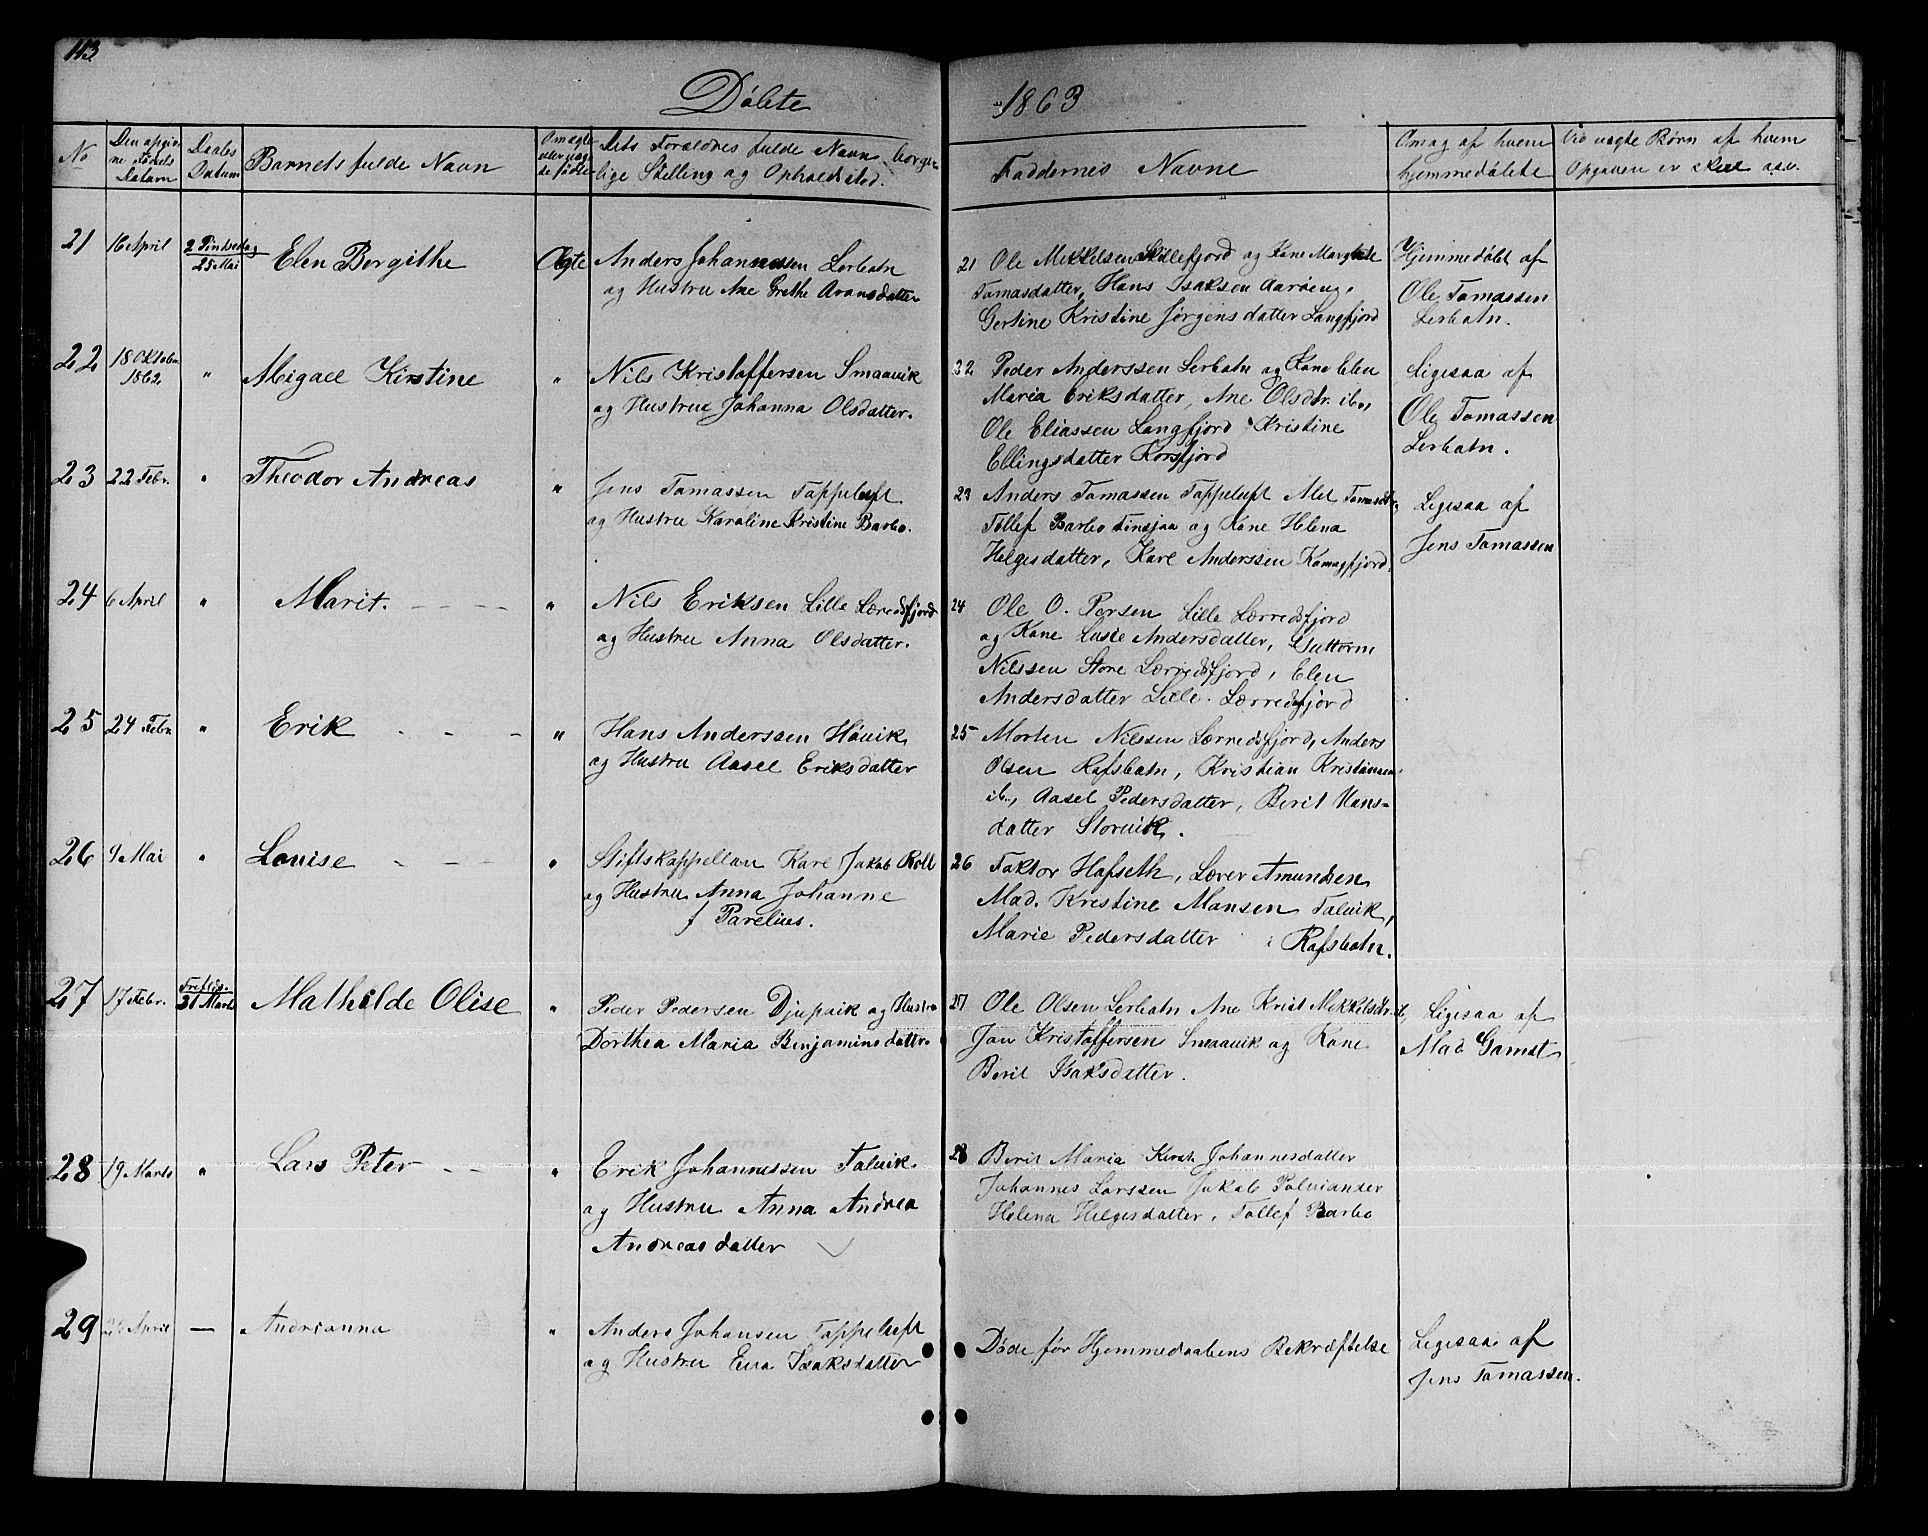 113
Döbte
1863
No
Den opgiv-
ne födsels
Datum
Daabs
Datum
Barnets fulde Navn
Om ægte
eller uæg-
te födte
Dets Foreldres fulde Navn, borger-
lige Stilling og Opholdsted.
Faddernes Navne
Om og af hvem
hjemmedöbte
Vid uegte Börn af hvem
Opgaven er skeet o.s.v.
21
16 April
2 Pintsedag
25 Mai
Elen Bergithe
Ægte
Anders Johannessen Lerbatn
og Hustru Ane Grethe Aronsdatter
21 Ole Mikkelsen Skillefjord og Kone Margrete
Tomasdatter, Hans Isaksen Aaröeng,
Gertine Kristine Jörgensdatter Langfjord
Hjemmedöbt af
Ole Tomassen
Lerbatn.
22
18 Oktober
1862
"
Migael Kirstine
"
Nils Kristoffersen Smaavik
og Hustru Johanna Olsdatter.
22 Peder Anderssen Lerbatn og Kone Elen
Maria Eriksdatter, Ane Olsdtr. ib.,
Ole Eliassen Langfjord Kristine
Ellingsdatter Korsfjord
Ligesaa af
Ole Tomassen
Lerbatn.
23
22 Febr.
"
Theodor Andreas
"
Jens Tomassen Tappeluft
og Hustru Karoline Kristine Barbo.
23 Anders Tomassen Tappeluft Alet Tomasdtr,
Tollef Barbo Finsjaa og Kone Helena
Helgesdatter, Karl Anderssen Komagfjord.
Ligesaa af
Jens Tomassen
24
6 April
"
Marit.
"
Nils Eriksen Lille Lærredsfjord
og Hustru Anna Olsdatter.
24 Ole O. Persen Lille Lærredsfjord
og Kone Lusie Andersdatter, Guttorm
Nilssen Store Lærredsfjord, Elen
Andersdatter Lille Lærredsfjord
25
24 Febr
"
Erik
"
Hans Anderssen Hövik
og Hustru Aasel Eriksdatter
25 Morten Nilssen Lærredsfjord, Anders
Olsen Rafsbatn, Kristian Kristiansen
ib., Aasel Pedersdatter, Berit Hans-
datter Storvik.
26
9 Mai
"
Louise
"
Stiftskappellan Karl Jakob Roll
og Hustru Anna Johanne
f Parelius.
26 Faktor Hafseth, Lærer Amundsen
Mad. Kristine Mansen Talvik,
Marie Pedersdatter i Rafsbatn.
27
17 Febr.
21 Marts
Mathilde Olise
"
Peder Pedersen Djupvik og Hustru
Dorthea Maria Benjaminsdatter
27 Ole Olsen Lerbatn Ane Krist Mikkelsdtr ib,
Jon Kristoffersen Smaavik og Kone
Berit Isaksdatter.
Ligesaa af
Mad Gamst
28
19 Marts
"
Lars Peter
"
Erik Johannessen Talvik
og Hustru Anna Andrea
Andreasdatter
28 Berit Maria Kirst. Johannesdatter
Johannes Larssen Jakob Palviander
Helena Helgesdatter, Tollef Barbo
29
26 April
—
Andrianna
"
Anders Johansen Tappeluft
og Hustru Eva Isaksdatter
Döde för Hjemmedaabens Bekræftelse
Ligesaa af
Jens Tomassen.